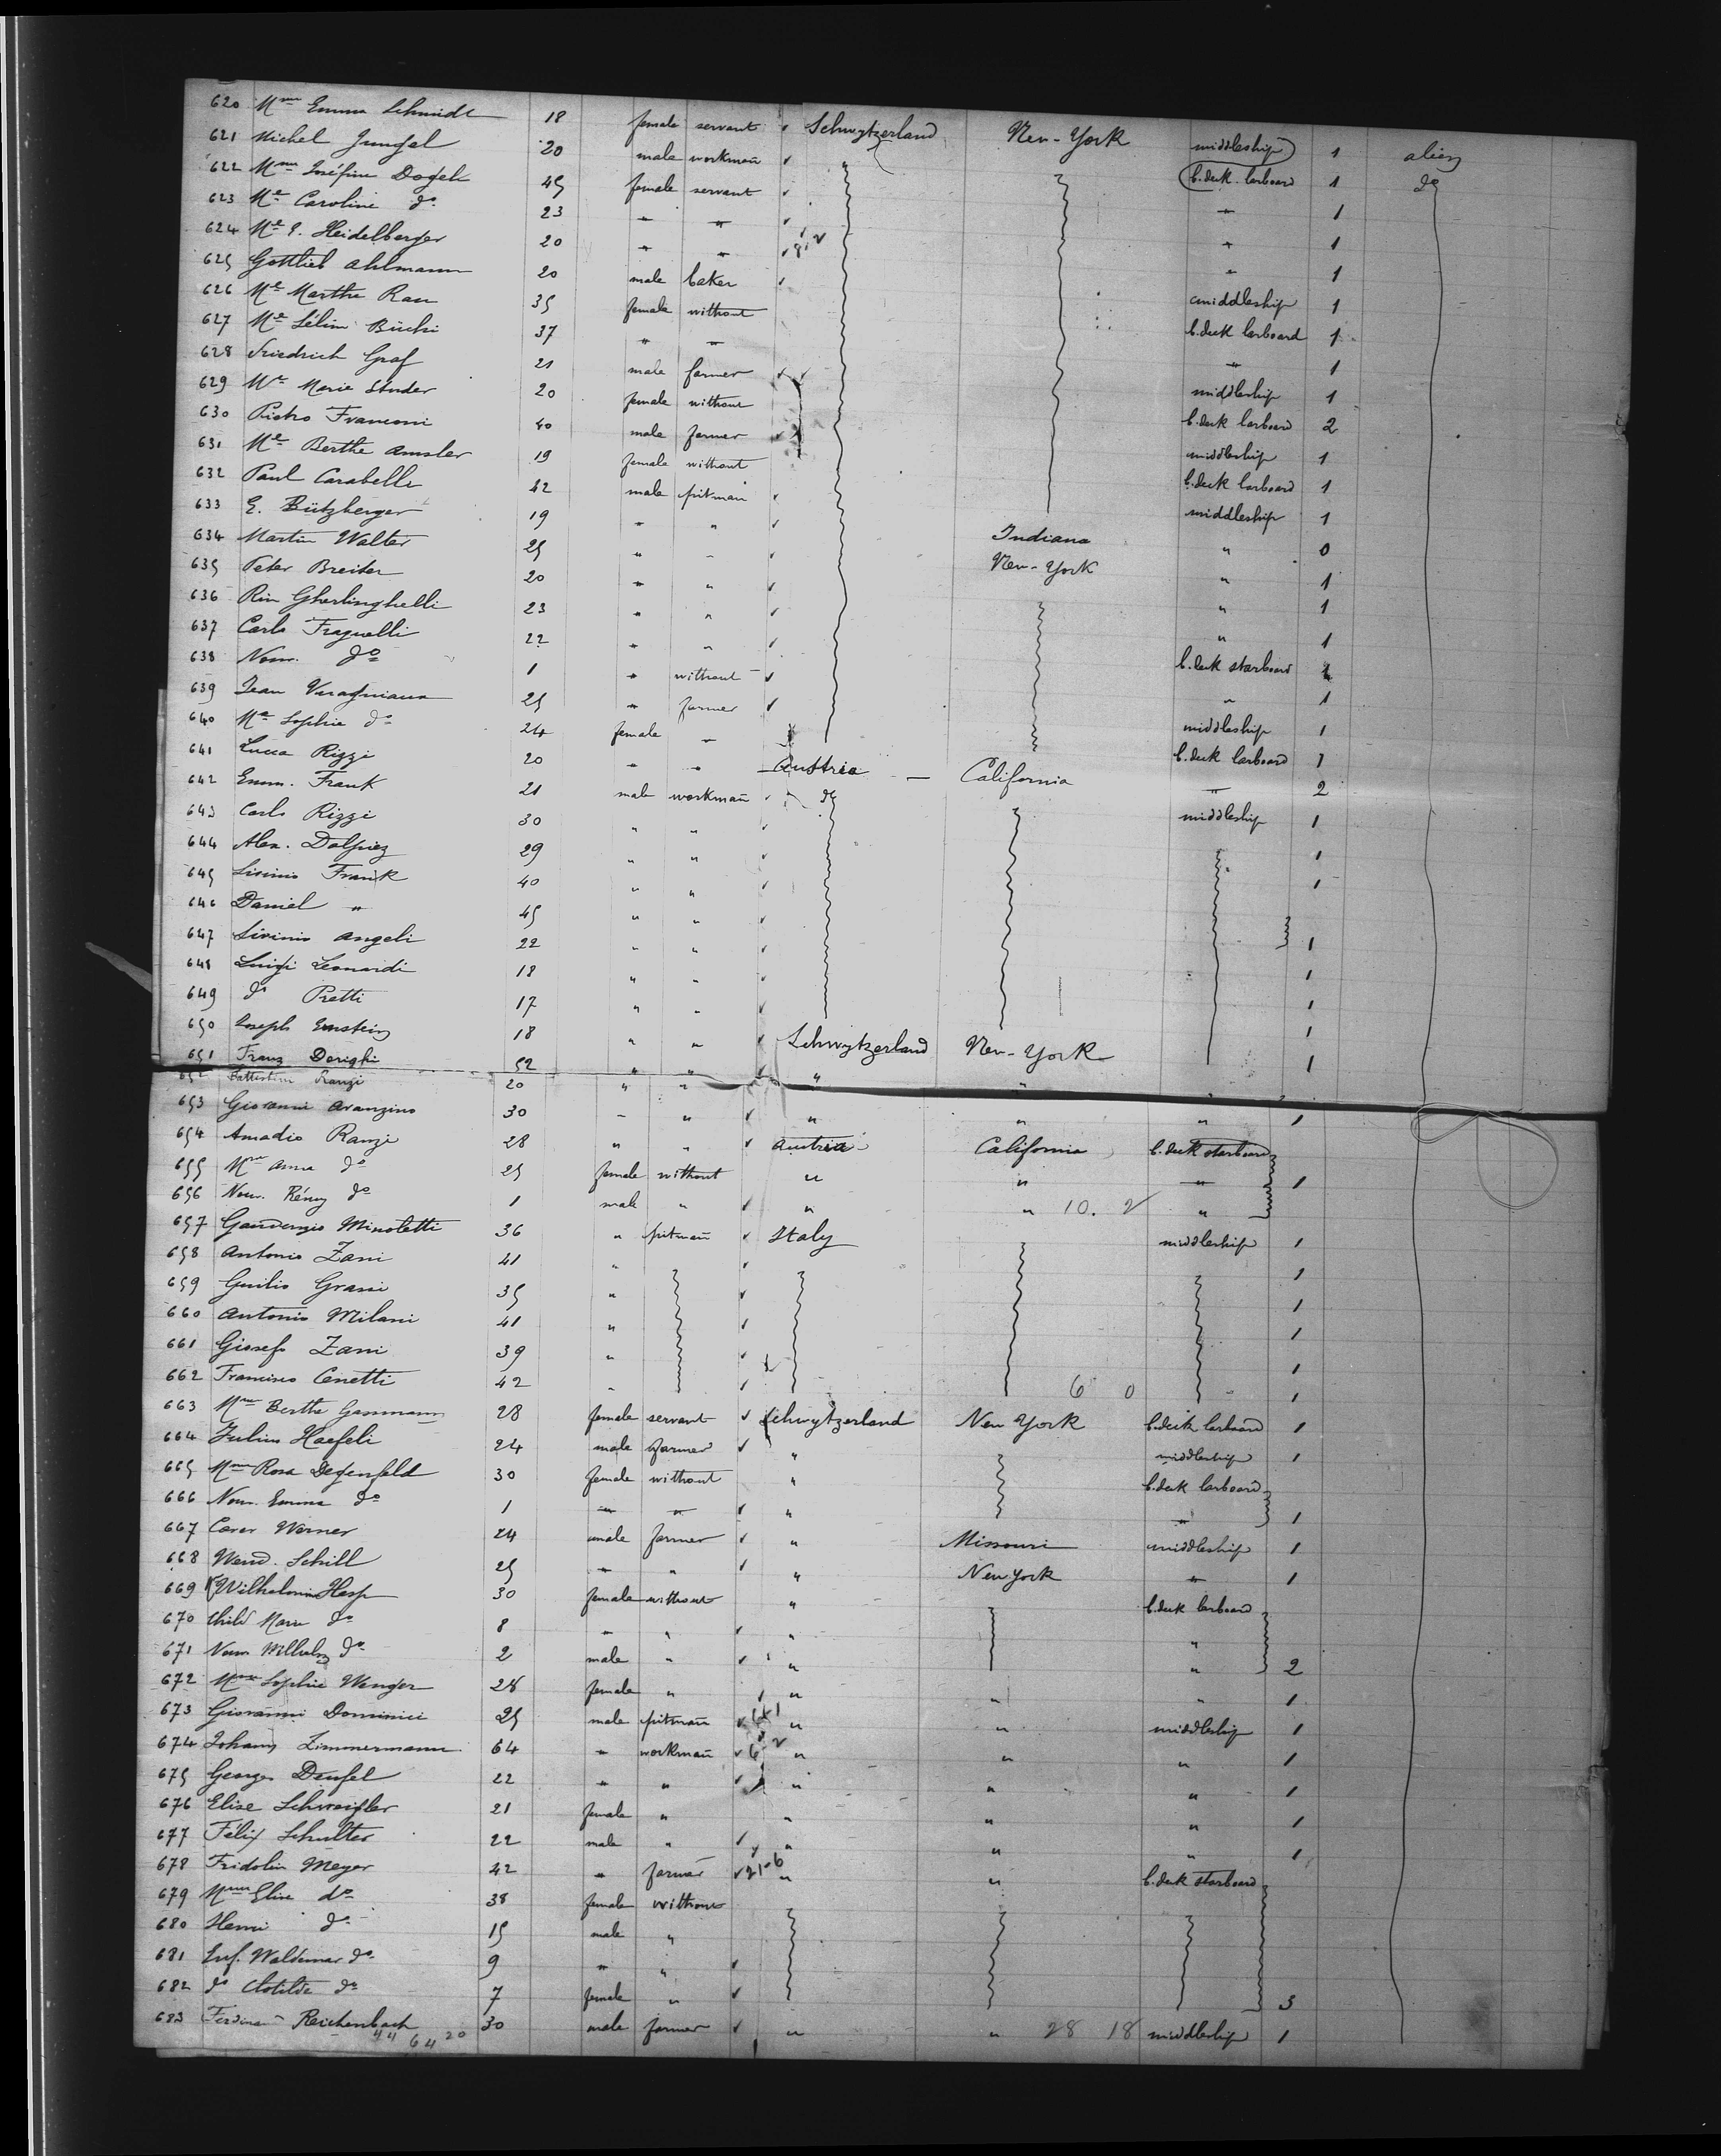 620 Mme Emma Schmidt 18 female servant ✓ Schwytzerland New-York middleship 1 alien
621 Michel Jungel 20 male workman ✓ " b.deck larboard 1 do
622 Mme Joséfine Dogeli 45 female servant ✓ " 1
623 Me Caroline do 23 " " ✓ " 1
624 Me E. Heidelberger 20 " " ✓ " 1
625 Gottlieb Ahlmann 20 male baker ✓ middleship 1
626 Me Marthe Rau 35 female without b.deck larboard 1
627 Me Célim Büchi 37 " " " 1
628 Friedrich Graf 21 male farmer ✓ middleship 1
629 Me Marie Studer 20 female without b.deck larboard 2
630 Pietro Franconi 40 male farmer ✓ middleship 1
631 Me Berthe Amsler 19 female without b.deck larboard 1
632 Paul Carabelli 42 male pitman ✓ middleship 1
633 E. Bützberger 19 " " ✓ Indiana " 0
634 Martin Walter 25 " " ✓ New-York " 1
635 Peter Breiter 20 " " ✓ " 1
636 Rin Gherlinghelli 23 " " ✓ " 1
637 Carlo Fraquelli 22 " " ✓ b.deck starboard 1
638 Nour. do 1 " without ✓ " 1
639 Jean 25 " farmer ✓ middleship 1
640 Me Sophie do 24 female " b.deck larboard 1
641 Lucca Rizzi 20 " " Austria California " 2
642 Emm. Frank 21 male workman ✓ do middleship 1
643 Carlo Rizzi 30 " " ✓ 1
644 Alex. Dalpiez 29 " " ✓ 1
645 Livinio Frank 40 " " ✓
646 Daniel " 45 " " ✓ 1
647 Livinio Angeli 22 " " ✓ 1
648 Luigi Leonardi 18 " " ✓ 1
649 do Pretti 17 " " ✓ 1
650 Joseph Emstein 18 " " ✓ Schwytzerland New-York 1
651 Franz Dorighi 52 " " ✓ " "
652 Battistin Ranzi 20 " "
653 Giovanni Avanzino 30 " " ✓ " " " 1
654 Amadio Ranzi 28 " " ✓ Austria California b.deck starboard
655 Mme Anna do 25 female without " " " 1
656 Nour. Rémy do 1 male " ✓ " " 10. 2 "
657 Gaudenzio Minoletti 36 " pitman ✓ Italy middleship 1
658 Antonio Zani 41 " ✓ 1
659 Guilio Grassi 35 " ✓ 1
660 Antonio Milani 41 " ✓ 1
661 Giosefo Zani 39 " ✓ 1
662 Francisco Cenetti 42 " ✓ 6 0 1
663 Mme Berthe Gassmann 28 female servant ✓ Schwytzerland New York b.deck larboard 1
664 Julius Haefeli 24 male farmer ✓ " middleship 1
665 Mme Rosa Degenfeld 30 female without " b.deck larboard
666 Nour. Emma do 1 " " ✓ " " 1
667 Werner 24 male farmer ✓ " Missouri middleship 1
668 Wend. Schill 25 " " ✓ " New York " 1
669 Wilhelmin Hasp 30 female without " b.deck larboard
670 Child Marie do 8 " " ✓ " "
671 Nour Wilhelm do 2 male " ✓ " " 2
672 Mme Sophie Wenger 28 female " ✓ " " " 1
673 Giovanni Dominici 25 male pitman ✓ " " middleship 1
674 Johann Zimmermann 64 " workman ✓ " " " 1
675 Georges Deufel 22 " " ✓ " " " 1
676 Elise Schweigler 21 female " " " " 1
677 Félix Schulter 22 male " ✓ " " " 1
678 Fridolin Meyer 42 " farmer ✓ 21-6 " " b.deck starboard
679 Mme Elise do 38 female without
680 Henri do 15 male "
681 Enf. Waldemar do 9 " " ✓
682 do Clotilde do 7 female " ✓ 3
683 Ferdinand Reichenbach 30 male farmer ✓ " " 28 18 middleship 1
44 64 20